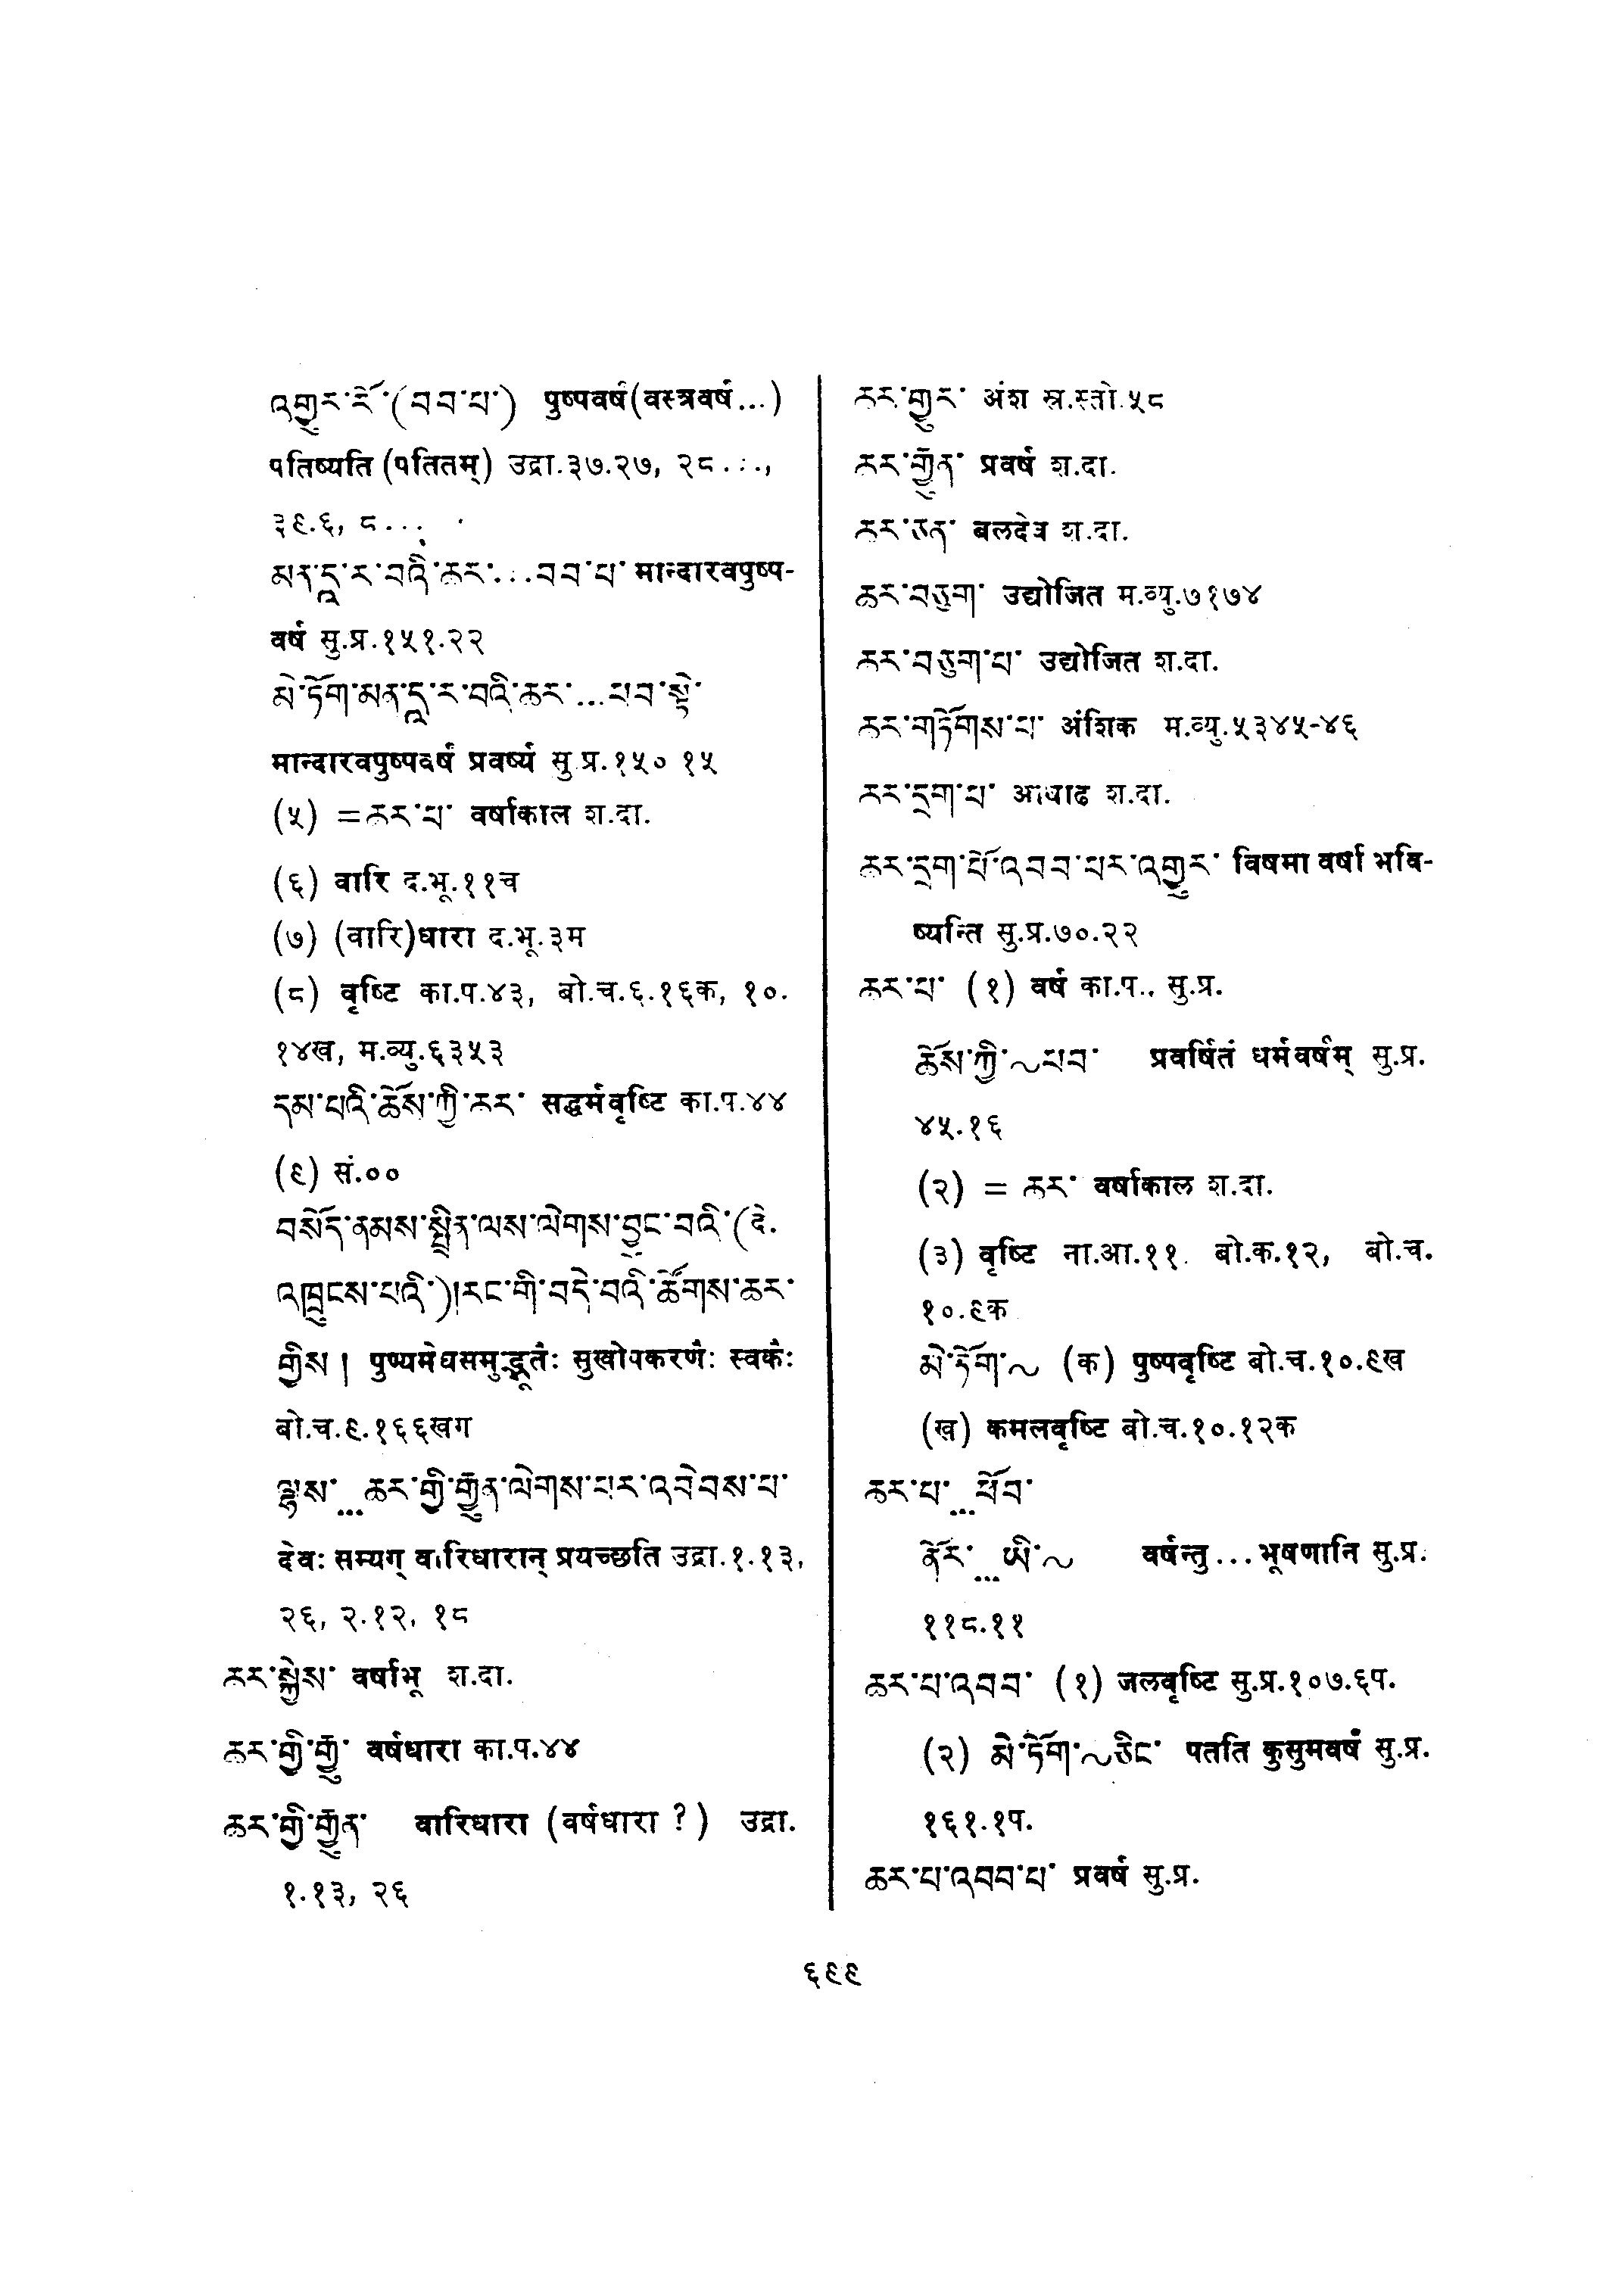 འགྱུར་རོ་(བབ་པ་) पुष्पवर्षं(वस्त्रवर्षं...)
पतिष्यति (पतितम्) उद्रा.३७.२७, २८...,
३९.६, ८...
མན་དཱ་ར་བའི་ཆར་...བབ་པ་ मान्दारवपुष्प-
वर्षं सु.प्र.१५१.२२
མེ་ཏོག་མན་དཱ་ར་བའི་ཆར་...ཕབ་སྟེ་
मान्दारवपुष्पवर्षं प्रवर्ष्य सु.प्र.१५० १५
(५) =ཆར་པ་ वर्षाकाल श.दा.
(६) वारि द.भू.११च
(७) (वारि)धारा द.भू.३म
(८) वृष्टि का.प.४३, बो.च.६.१६क, १०.
१४ख, म.व्यु.६३५३
དམ་པའི་ཆོས་ཀྱི་ཆར་ सद्धर्मवृष्टि का.प.४४
(९) सं.००
བསོད་ནམས་སྤྲིན་ལས་ལེགས་བྱུང་བའི་(दे.
འཁྲུངས་པའི་)།རང་གི་བདེ་བའི་ཚོགས་ཆར་
གྱིས། पुण्यमेघसमुद्भूतैः सुखोपकरणैः स्वकैः
बो.च.९.१६६खग
ལྷས་...ཆར་གྱི་རྒྱུན་ལེགས་པར་འབེབས་པ་
देवः सम्यग् वारिधारान् प्रयच्छति उद्रा.१.१३,
२६, २.१२, १८
ཆར་སྐྱེས་ वर्षाभू श.दा.
ཆར་གྱི་རྒྱུ་ वर्षधारा का.प.४४
ཆར་གྱི་རྒྱུན་ वारिधारा (वर्षधारा ?) उद्रा.
१.१३, २६
ཆར་གྱུར་ अंश स्र.स्तो.५८
ཆར་རྒྱུན་ प्रवर्ष श.दा.
ཆར་ཅན་ बलदेव श.दा.
ཆར་བཅུག་ उद्योजित म.व्यु.७१७४
ཆར་བཅུག་པ་ उद्योजित श.दा.
ཆར་གཏོགས་པ་ अंशिक म.व्यु.५३४५-४६
ཆར་དྲག་པ་ श.दा.
ཆར་དྲག་པོ་འབབ་པར་འགྱུར་ विषमा वर्षा भवि-
ष्यन्ति सु.प्र.७०.२२
ཆར་པ་ (१) वर्ष का.प., सु.प्र.
ཆོས་ཀྱི་~ཕབ་ प्रवर्षितं धर्मवर्षम् सु.प्र.
४५.१६
(२) = ཆར་ वर्षाकाल श.दा.
(३) वृष्टि ना.आ.११. बो.क.१२, बो.च.
१०.९क
མེ་ཏོག་~ (क) पुष्पवृष्टि बो.च.१०.९ख
(ख) कमलवृष्टि बो.च.१०.१२क
ཆར་པ་...ཕོབ་
ནོར་...ཡི་~ वर्षन्तु...भूषणानि सु.प्र.
११८.११
ཆར་པ་འབབ་ (१) जलवृष्टि सु.प्र.१०७.६प.
(२) མེ་ཏོག་~ཅིང་ पतति कुसुमवर्षं सु.प्र.
१६१.१प.
ཆར་པ་འབབ་པ་ प्रवर्ष सु.प्र.
६९९